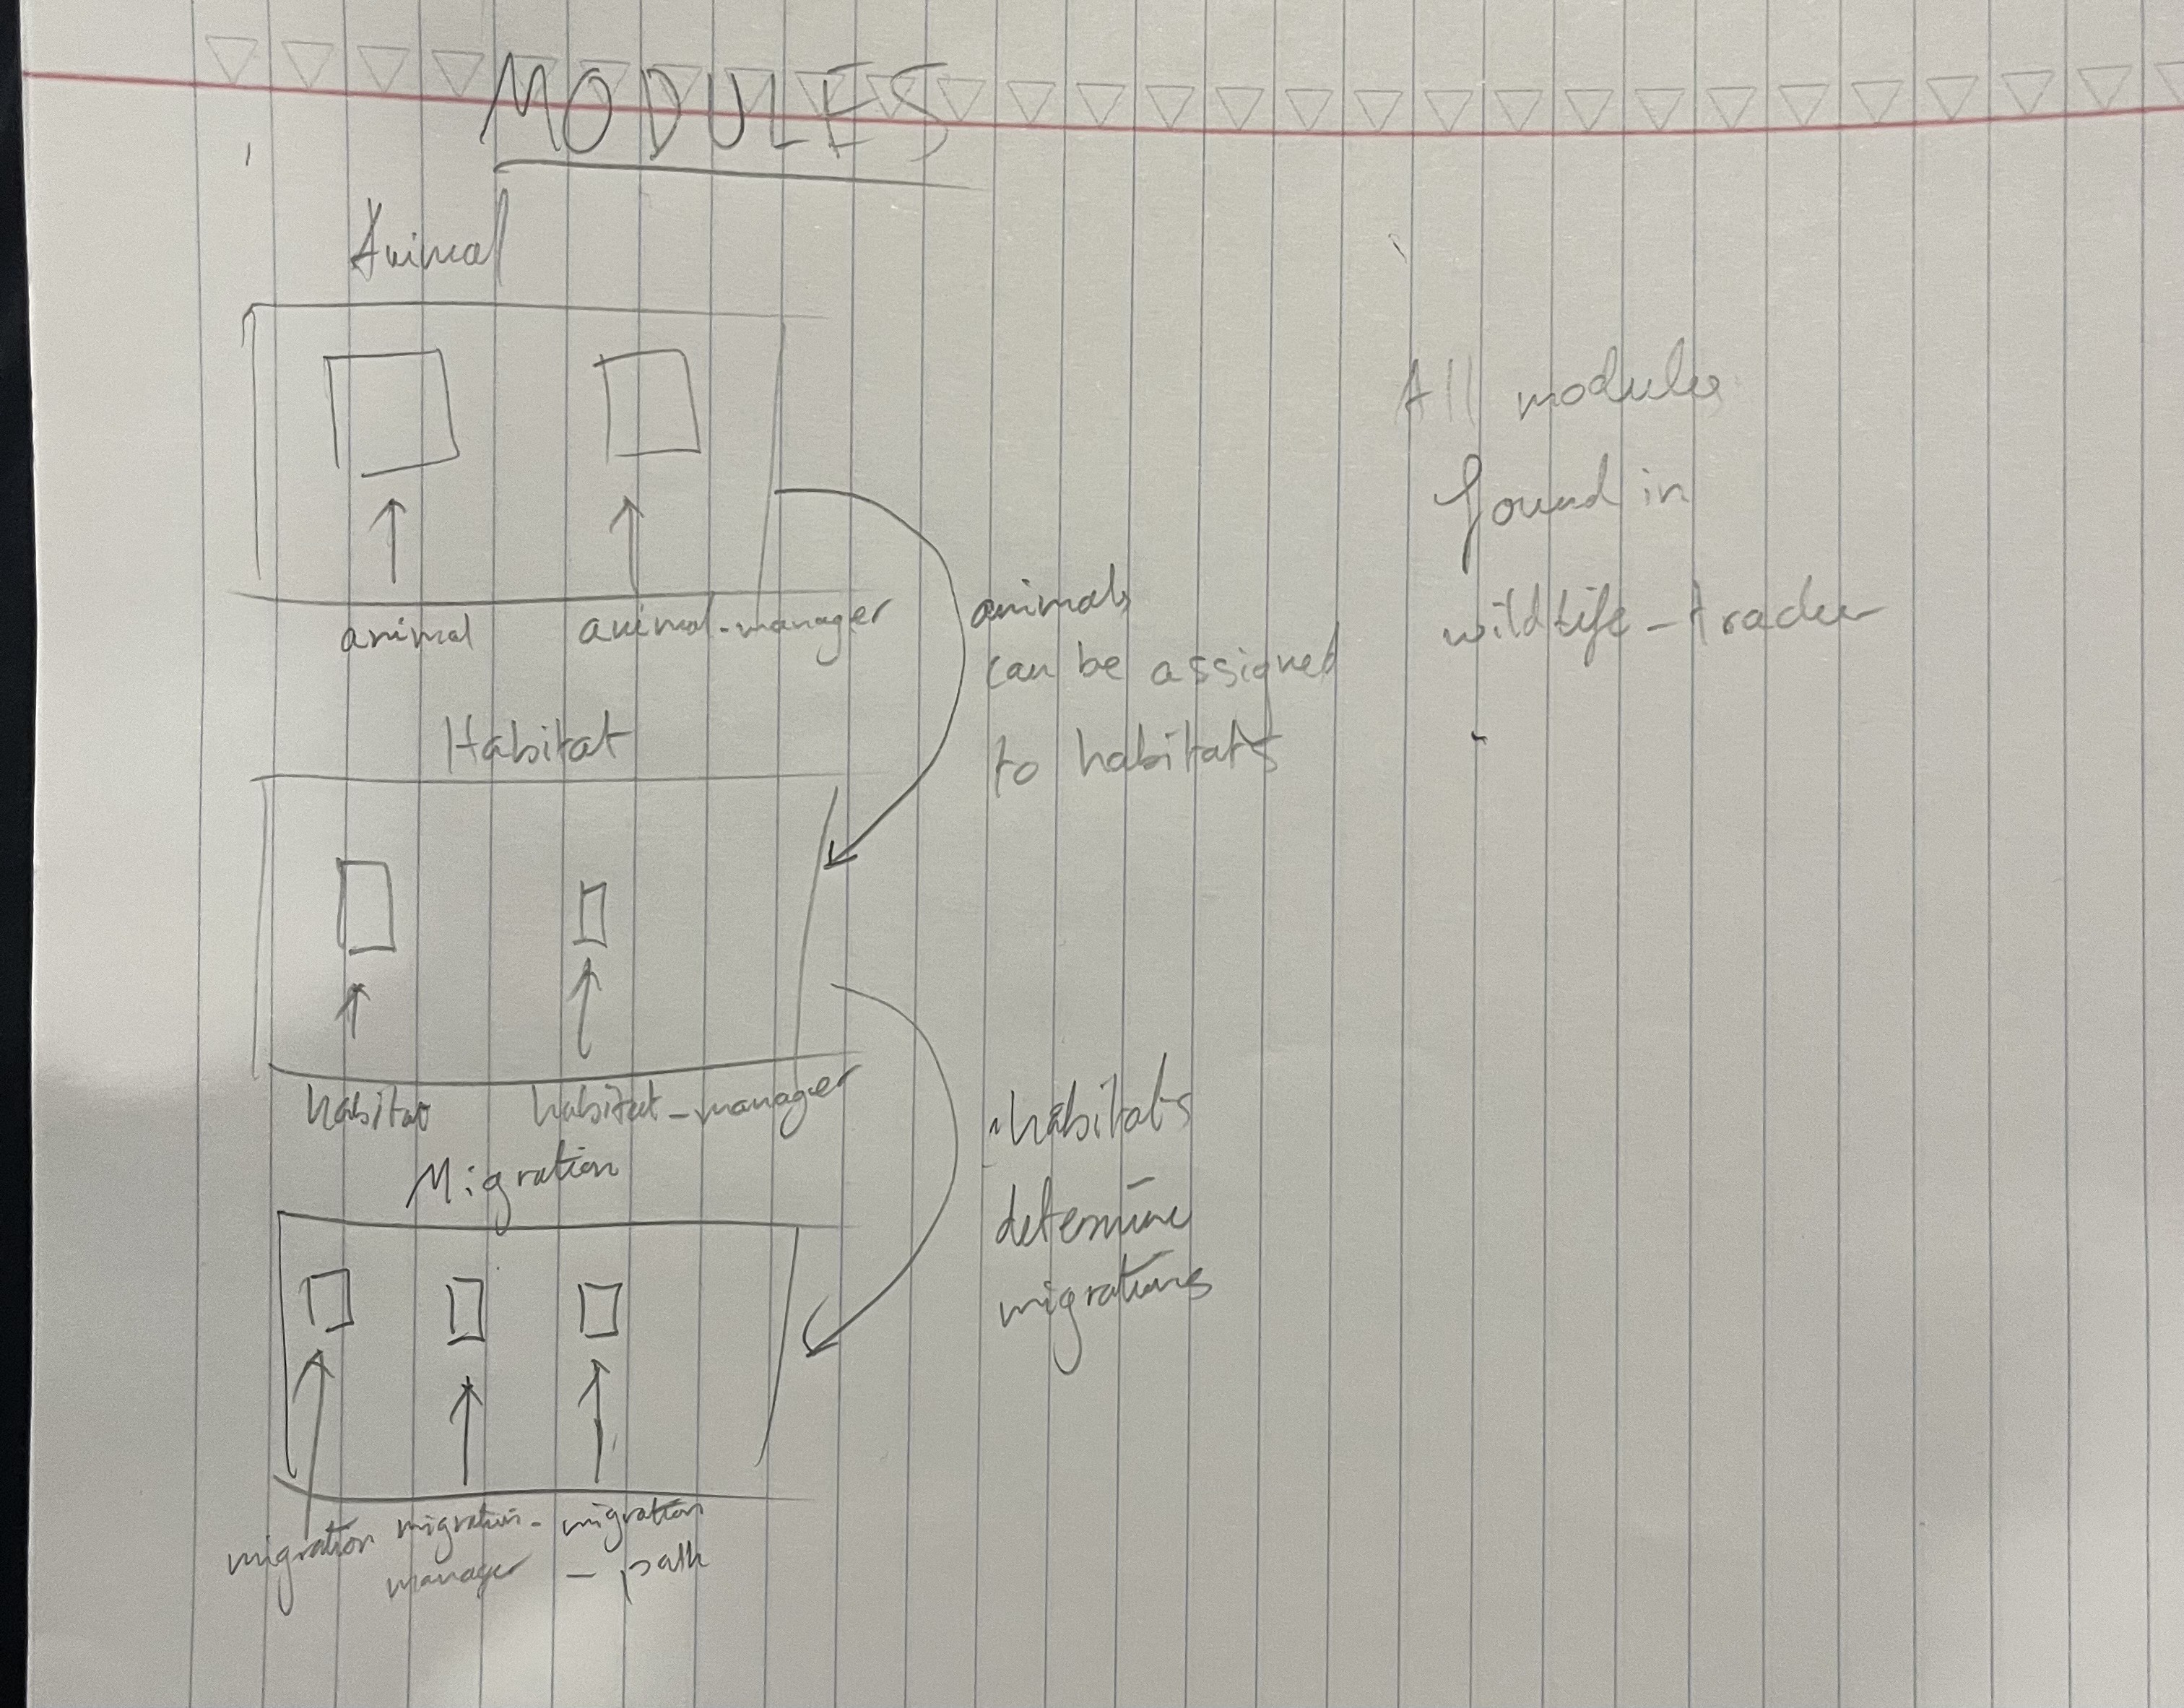 MODULES
Animal
animal
animal-manager
animals
can be assigned
to habitats
Habitat
habitat
habitat-manager
habitats
determine
migrations
Migration
migration
migration-
manager
migration
- path
All modules
found in
wildlife-tracker